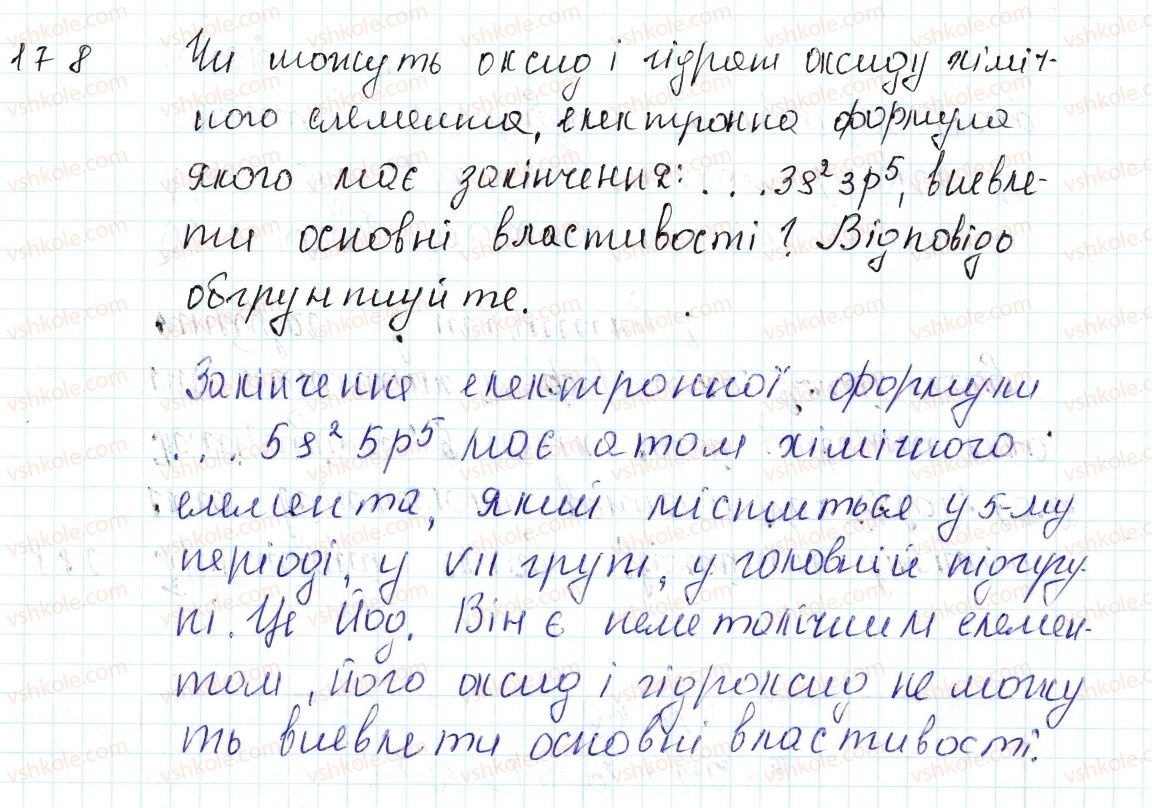 178 Чи можуть оксид і гідрат оксиду хіміч-
ного елемента, електронна формула
якого має закінчення: ...3s²3p⁵, виявля-
ти основні властивості? Відповідь
обгрунтуйте.
Закінчення електронної формули
...5s²5p⁵ має атом хімічного
елемента, який міститься у 5-му
періоді, у VII групі, у головній підгру-
пі. Це Йод. Він є неметалічним елемен-
том, його оксид і гідроксид не можу
ть виявляти основні властивості.